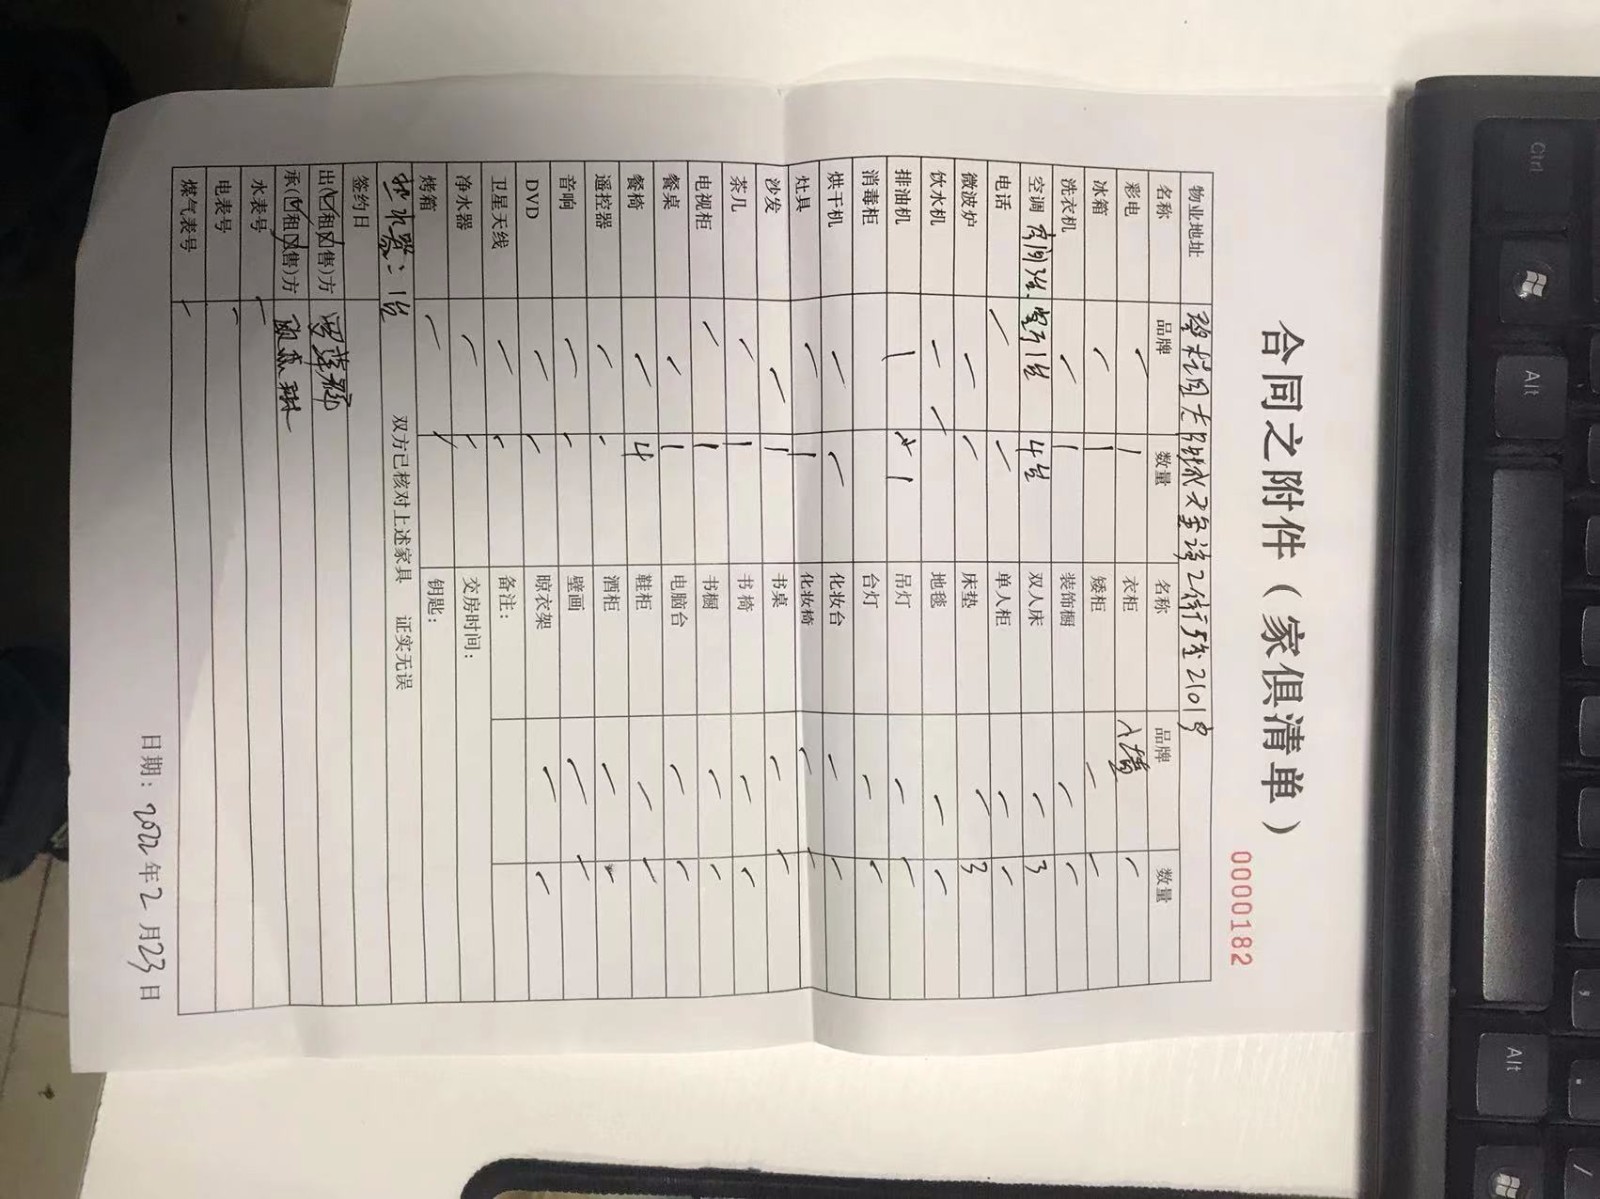 合同之附件（家俱清单）
0000182
物业地址 2101
名称 品牌 数量 名称 品牌 数量
彩电 1 衣柜 入墙
冰箱 1 矮柜
洗衣机 1 装饰橱
空调 房间3台 客厅1台 4台 双人床 3
电话 单人柜
微波炉 床垫 3
饮水机 地毯
排油机 1 吊灯
消毒柜 台灯
烘干机 化妆台
灶具 1 化妆椅
沙发 1 书桌
茶几 1 书椅
电视柜 1 书橱
餐桌 1 电脑台
餐椅 4 鞋柜
遥控器 酒柜
音响 壁画
DVD 晾衣架
卫星天线 备注：
净水器 交房时间：
烤箱 钥匙：
热水器：1台 双方已核对上述家具 证实无误
签约日
出(☑租☒售)方
承(☑租☒售)方
水表号
电表号
煤气表号
日期：2022年2月23日
Ctrl
Alt
Alt